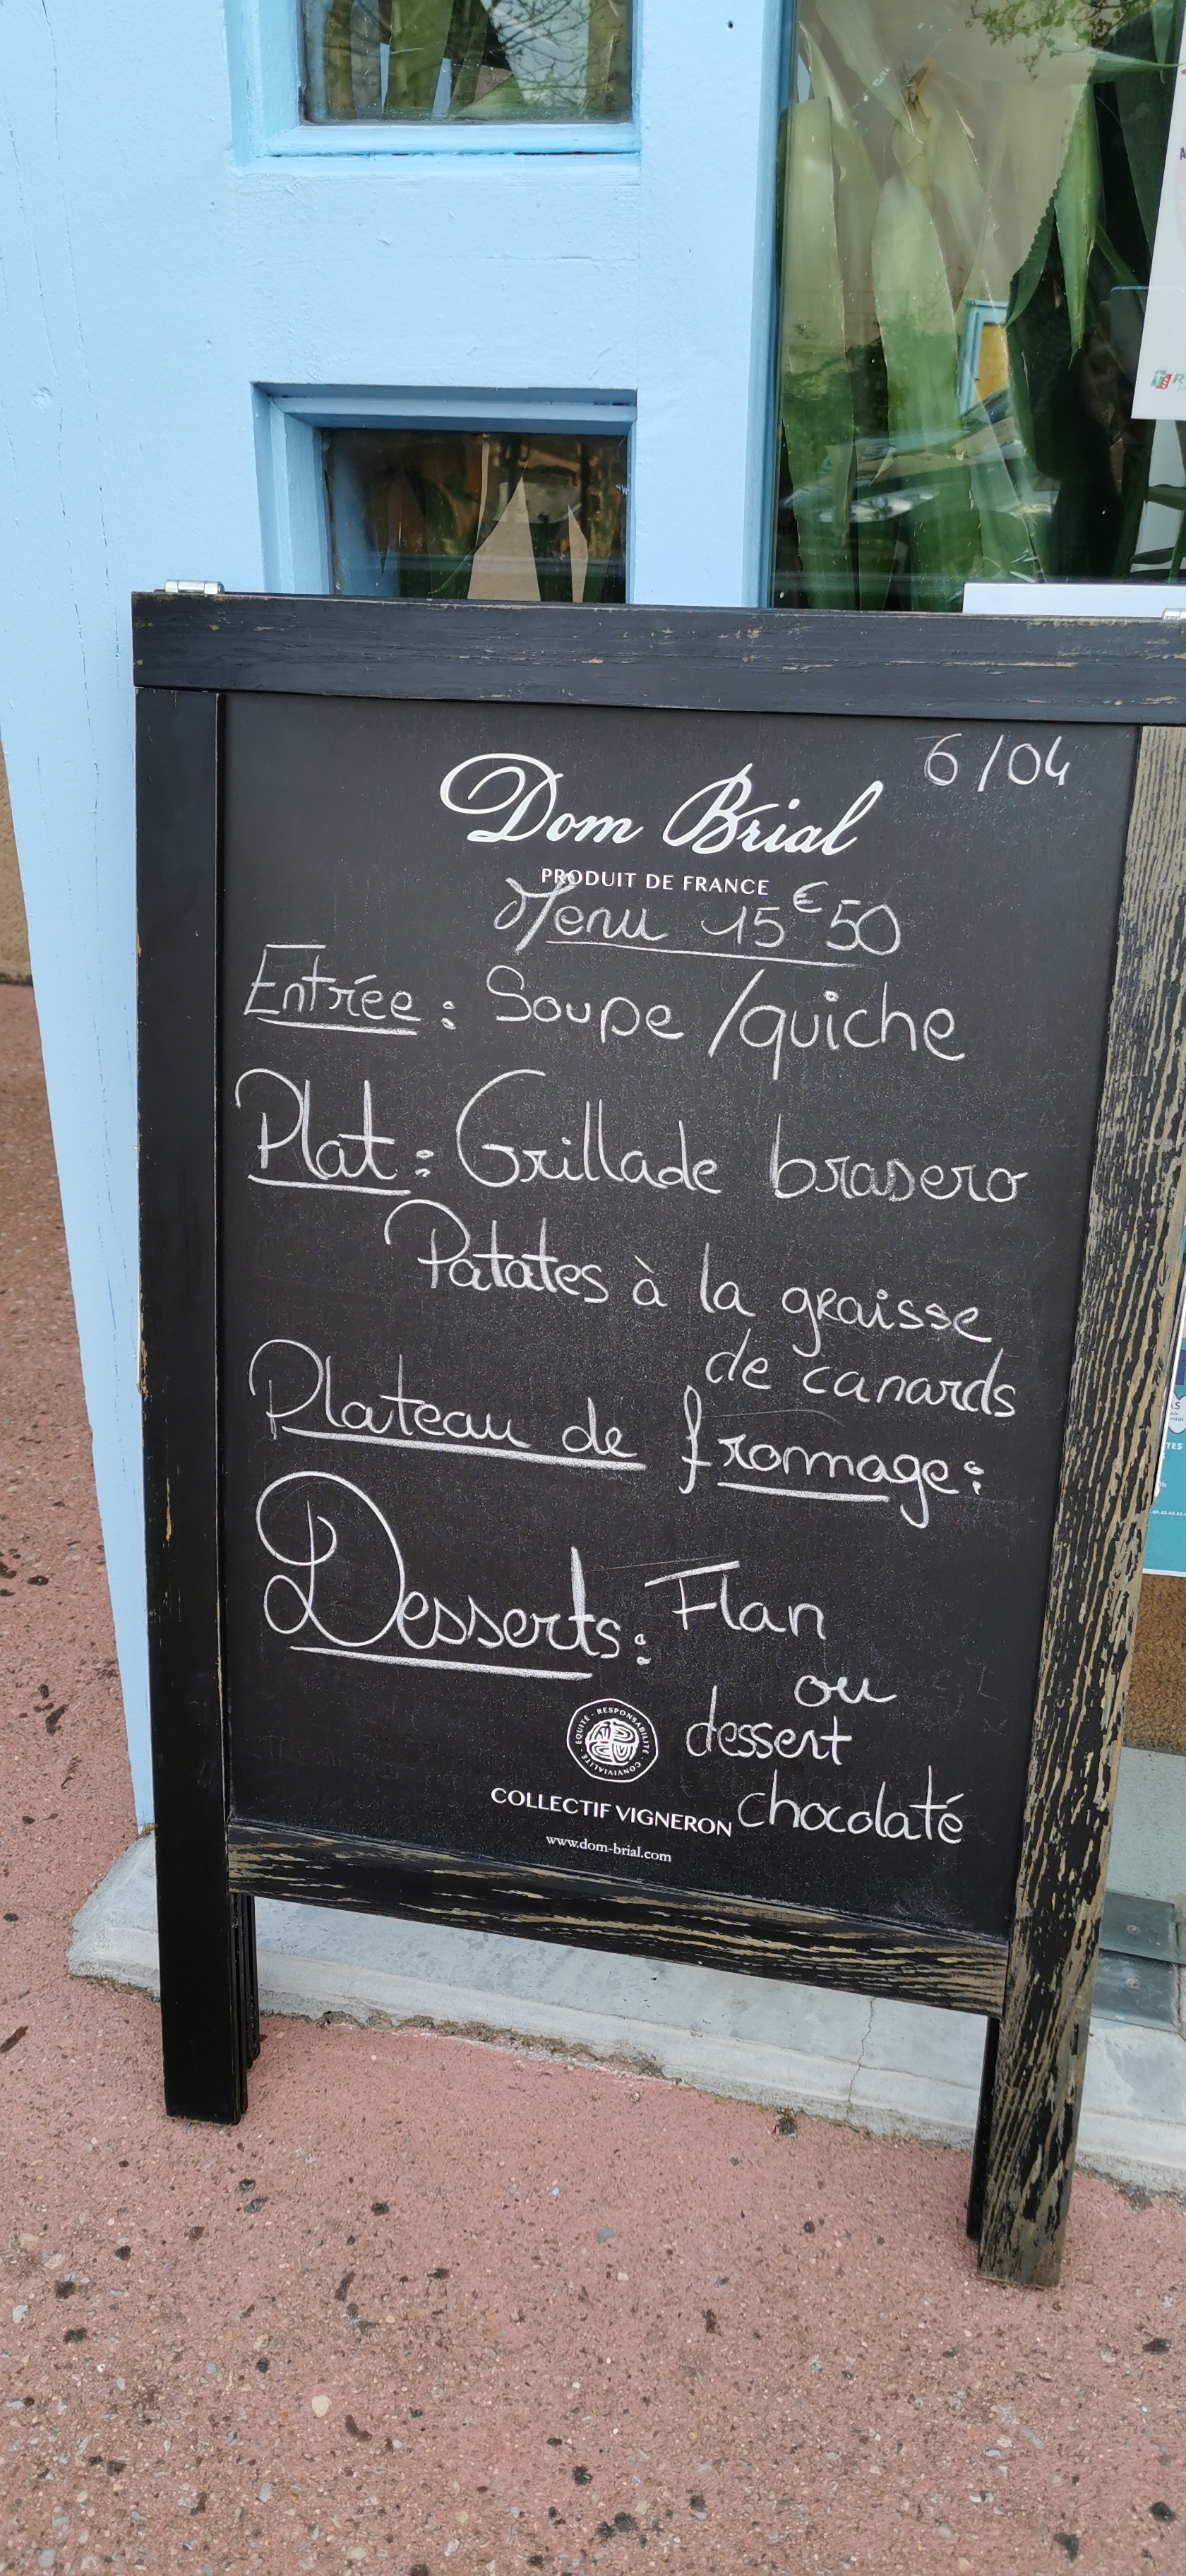 6/04
Dom Brial
PRODUIT DE FRANCE
Menu 15€50
Entrée : Soupe / quiche
Plat : Grillade brasero
Patates à la graisse
de canards
Plateau de fromage :
Desserts : Flan
ou
dessert
chocolaté
ÉQUITÉ - RESPONSABILITÉ - CONVIVIALITÉ
COLLECTIF VIGNERON
www.dom-brial.com